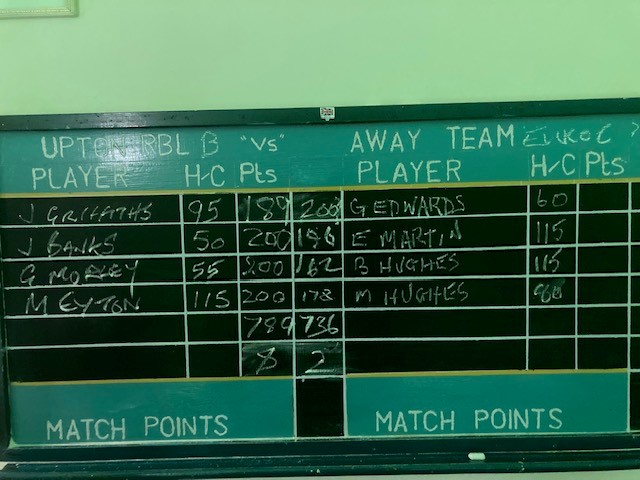 UPTON RBL B "Vs" AWAY TEAM
PLAYER H/C Pts PLAYER H/C Pts
J GRIFFATHS 95 189 200 G EDWARDS 60
J BANKS 50 200 196 E MARTIN 115
G MORLEY 55 200 162 B HUGHES 115
M EYTON 115 200 178 M HUGHES
789 736
8 2
MATCH POINTS MATCH POINTS